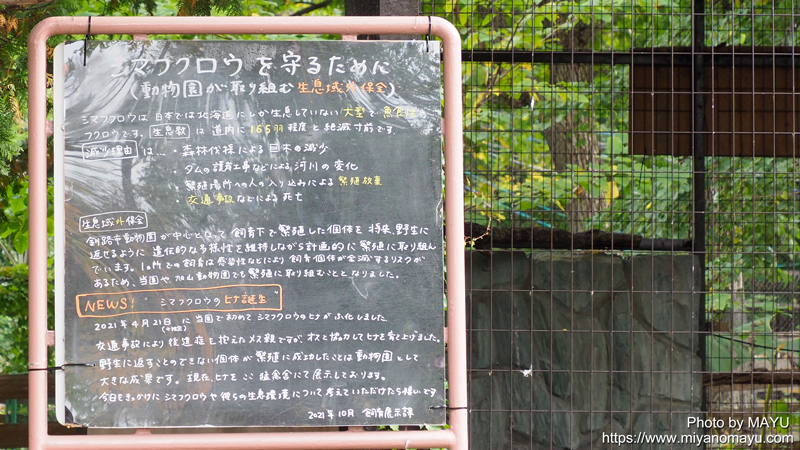 シマフクロウを守るために
(動物園が取り組む生息域外保全)
シマフクロウは日本では北海道にしか生息していない大型で魚食性の
フクロウです。生息数は道内に165羽程度と絶滅寸前です。
減少理由は…・森林伐採による巨木の減少
・ダムの護岸工事などによる河川の変化
・繁殖場所への人の入り込みによる繁殖放棄
・交通事故などによる死亡
生息域外保全
釧路市動物園が中心となって飼育下で繁殖した個体を将来、野生に
返せるように遺伝的な多様性を維持しながら計画的に繁殖に取り組ん
でいます。1ヶ所での飼育は感染性などにより飼育個体が全滅するリスクが
あるため、当園や旭山動物園でも繁殖に取り組むこととなりました。
NEWS! シマフクロウのヒナ誕生
2021年4月21日に当園で初めてシマフクロウのヒナがふ化しました
交通事故により後遺症を抱えたメス親ですが、オスと協力してヒナを育て上げました。
野生に返すことのできない個体が繁殖に成功したことは動物園として
大きな成果です。現在、ヒナをここ猛禽舎にて展示しております。
今日をきっかけにシマフクロウや彼らの生息環境について考えていただけたら幸いです
2021年10月 飼育展示課
Photo by MAYU
https://www.miyanomayu.com